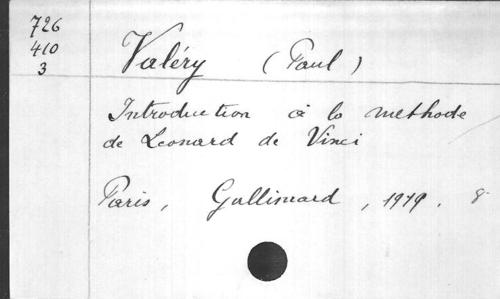 726
410
3
Valéry (Paul)
Introduction à la méthode
de Leonard de Vinci
Paris, Gallimard, 1919. 8